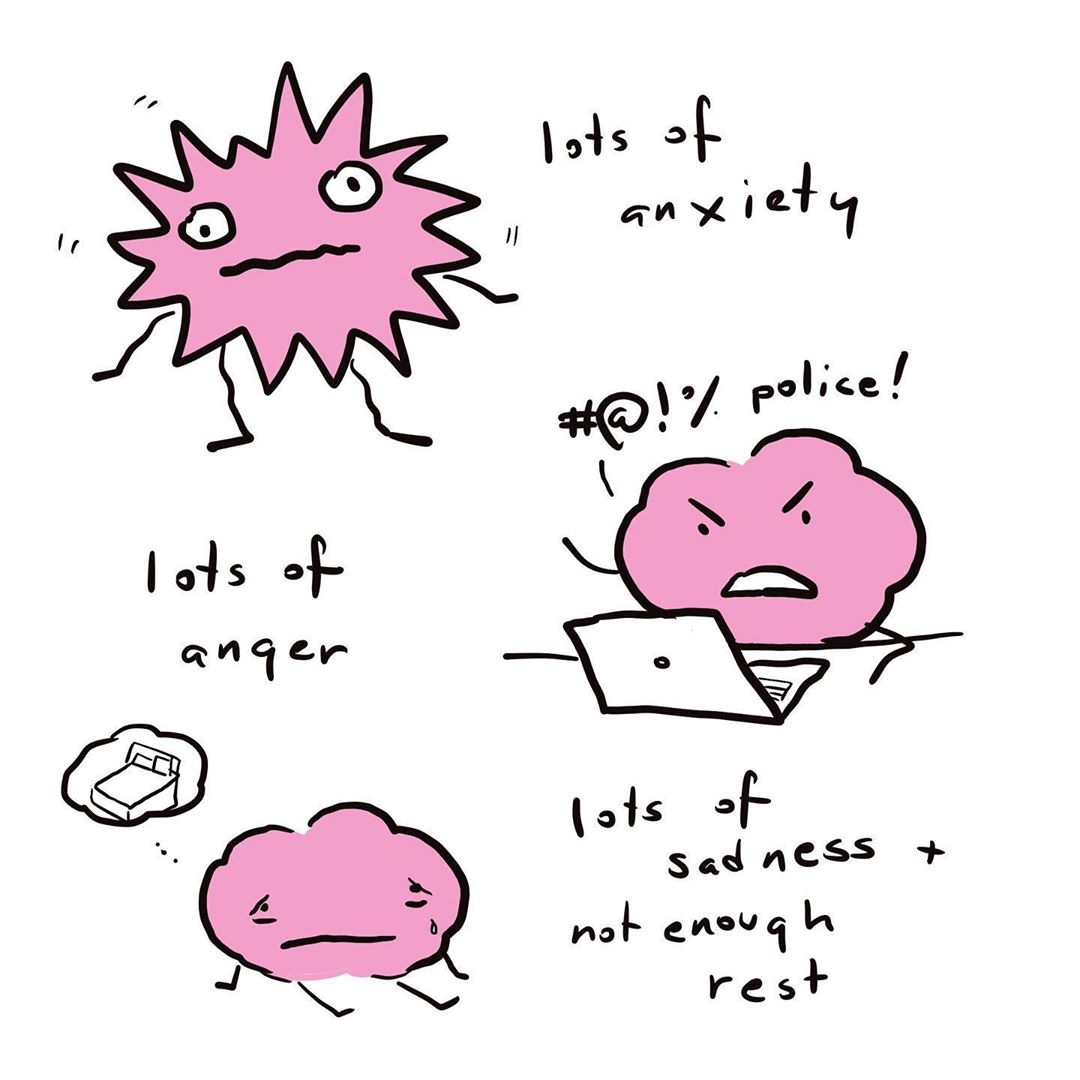 lots of
anxiety
#@!% police!
lots of
anger
lots of
sadness +
not enough
rest